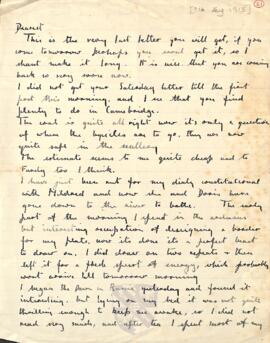 Dearest
This is the very last letter you will get, if you
come tomorrow perhaps you wont get it, so I
shant make it long. It is nice that you are coming
back so very soon now.
I did not get your Saturday letter till the first
post this morning, and I see that you find
plenty to do in Cambridge.
The coal is quite all right now it's only a question
of where the bycicles are to go, they are now
quite safe in the scullery
The estimate seems to me quite cheap and to
Fredy too I think.
I have just been out for my daily constitutional
with Hildard and now she and Doris have
gone down to the river to bathe. The early
part of the morning I spent in the
but interesting occupation of designing a border
for my plate, now its done its a perfect beast
to draw on. I did draw on two repeats & then
left it for a fresh spirit of energy, which probably
wont arrive till tomorrow morning
I began the Dawn in yesterday and found it
interesting, but lying on my bed it was not quite
thrilling enough to keep me awake, so I did not
read very much, and after tea I spent most of my